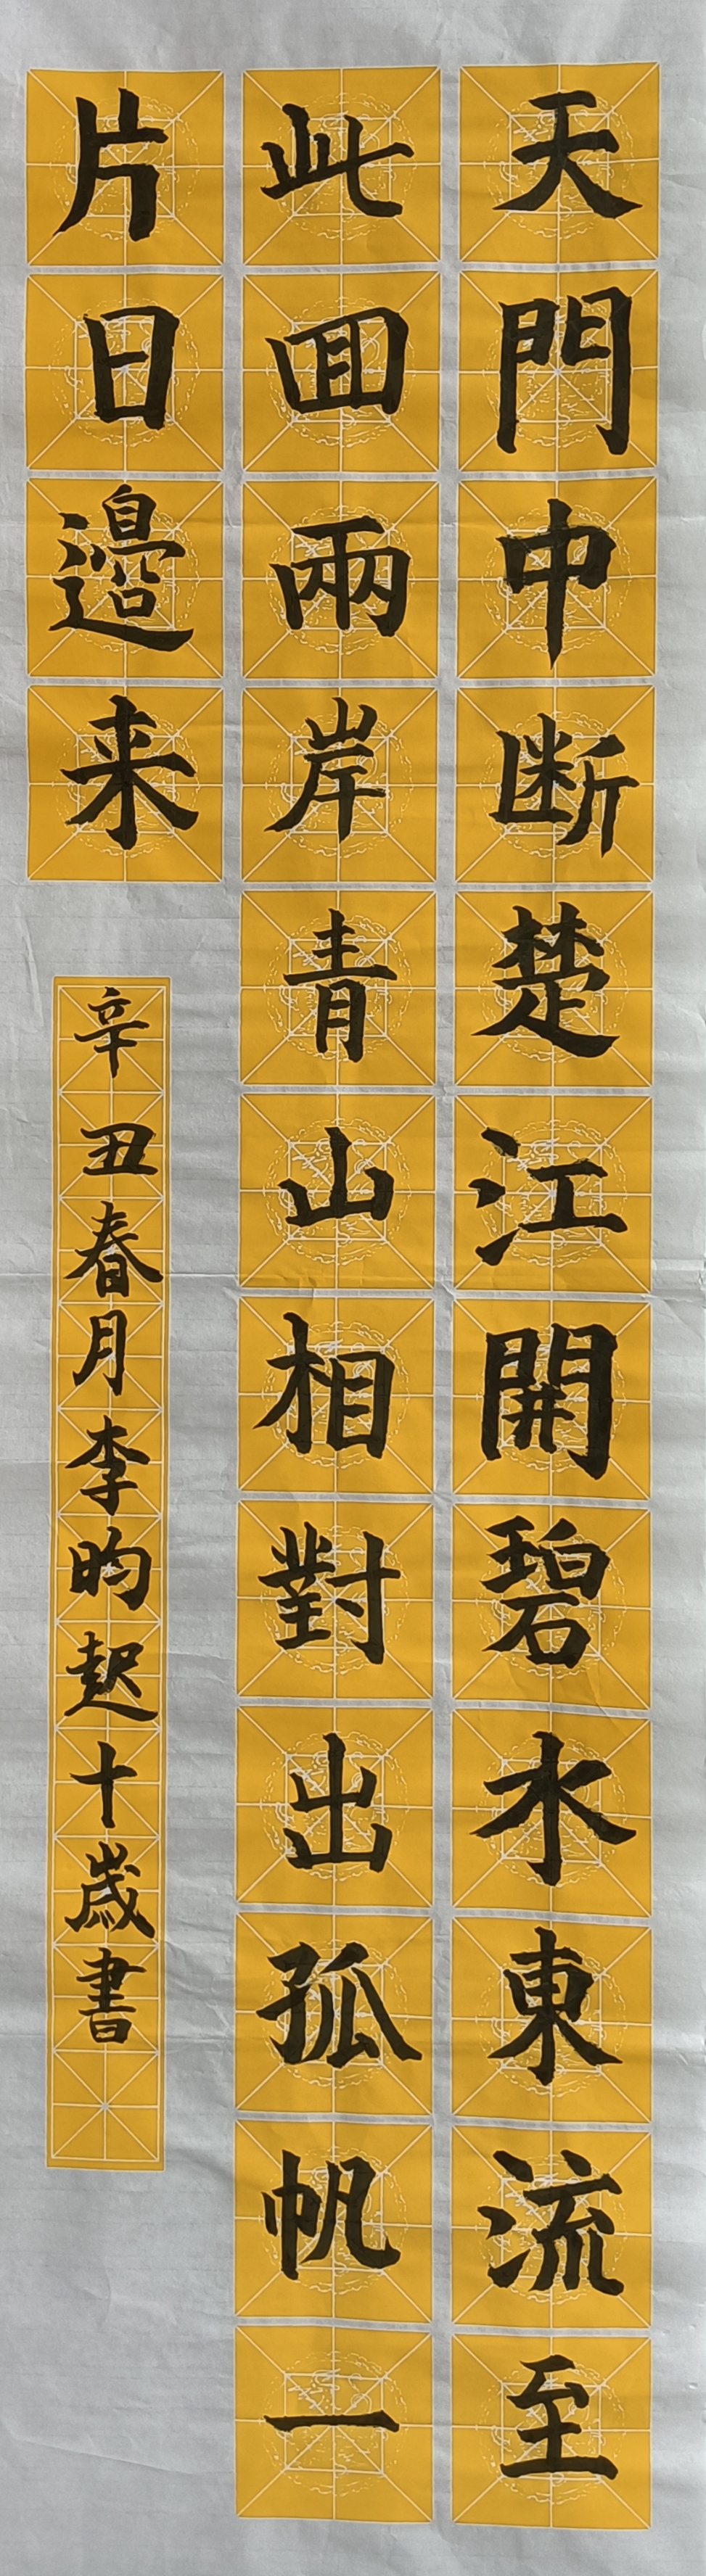 天門中断楚江開碧水東流至
此回兩岸青山相對出孤帆一
片日邉来
辛丑春月李昀起十歲書